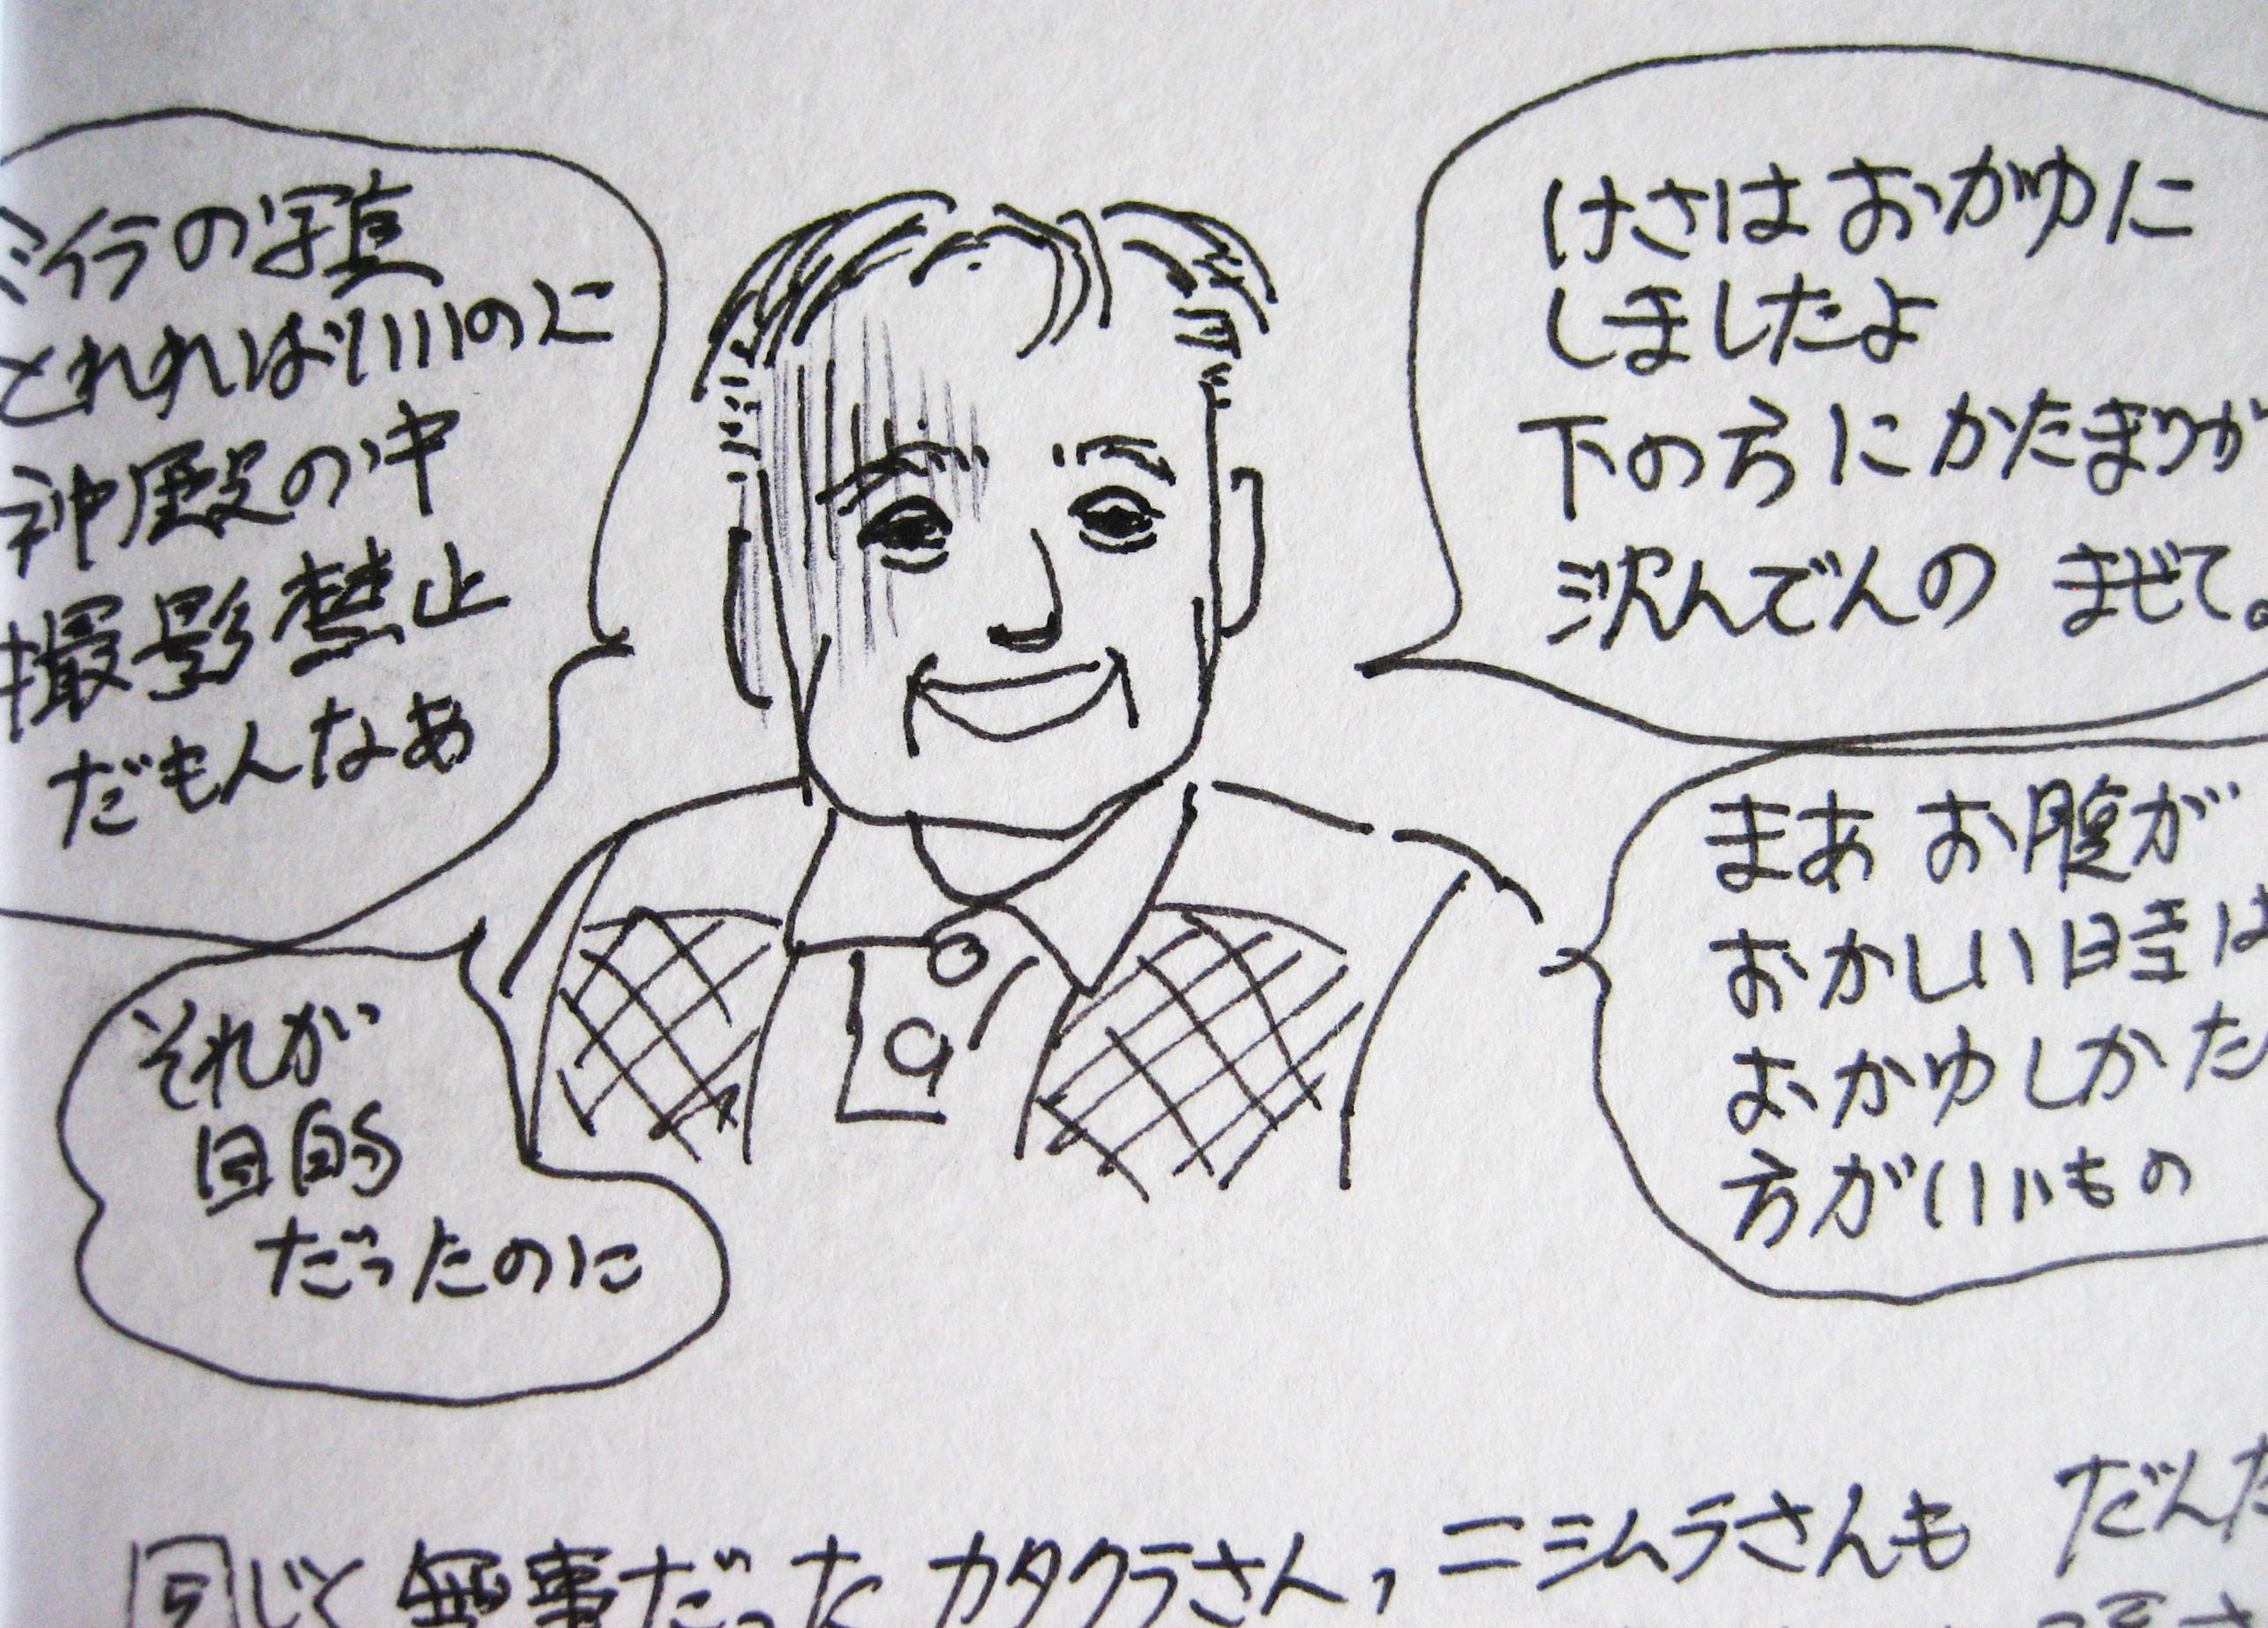 ミイラの写真
とれれば いいのに
神殿の中
撮影禁止
だもんなあ
それが
目的
だったのに
けさは おかゆに
しましたよ
下の方に かたまりが
沈んでんの まぜて。
まあ お腹が
おかしい時は
おかゆ しかた
方が いいもの
同じく 無事だった カタクラさん, ニシムラさんも だんだ